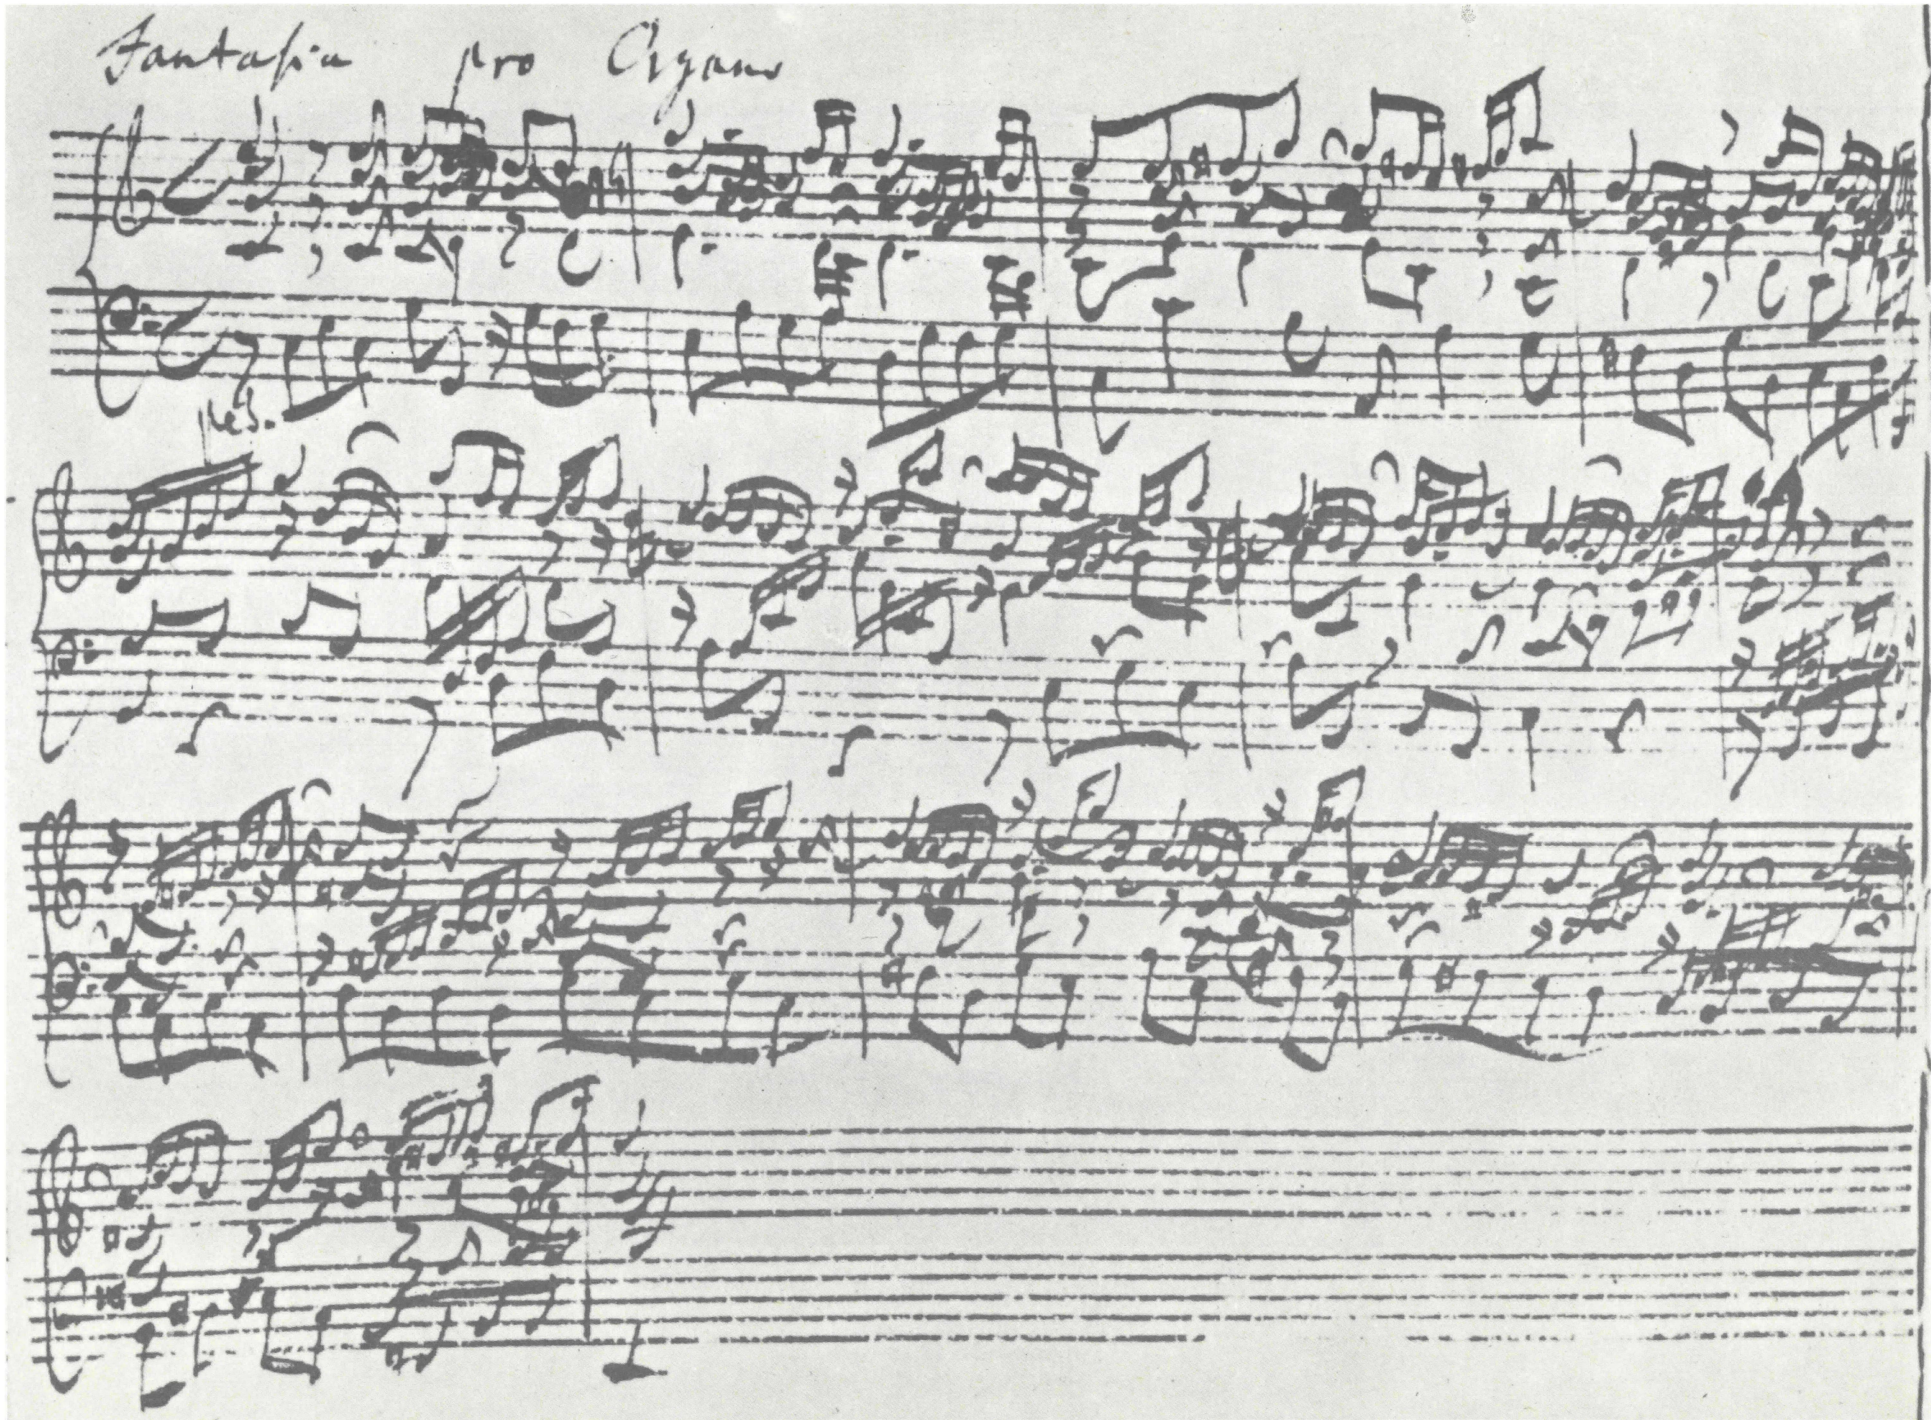 Fantasia pro Organo
ped.